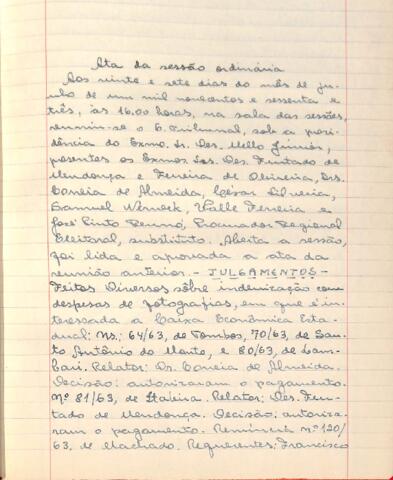 Ata da sessão ordinária
Aos vinte e sete dias do mês de ju-
nho de um mil novecentos e sessenta e
três, às 16.00 horas, na sala das sessões,
reuniu-se o E. Tribunal, sob a presi-
dência do Exmo. Sr. Des. Mello Júnior,
presentes os Exmos. Srs. Des. Furtado de
Mendonça e Ferreira de Oliveira, Drs.
Corrêia de Almeida, César Silveira,
Samuel Werneck, Valle Ferreira e
José Pinto Renó, Procurador Regional
Eleitoral, substituto. Aberta a sessão,
foi lida e aprovada a ata da
reunião anterior. - JULGAMENTOS -
Feitos Diversos sôbre indenização com
despesas de fotografias, em que é in-
teressada a Caixa Econômica Esta-
dual: Ns.: 64/63, de Tombos, 70/63, de San-
to Antônio do Monte, e 80/63, de Lam-
bari. Relator: Dr. Corrêia de Almeida.
Decisão: autorizaram o pagamento.
Nº 81/63, de Itabira. Relator: Des. Fur-
tado de Mendonça. Decisão: autoriza-
ram o pagamento. Renúncia nº 120/
63, de Machado. Requerentes: Francisco